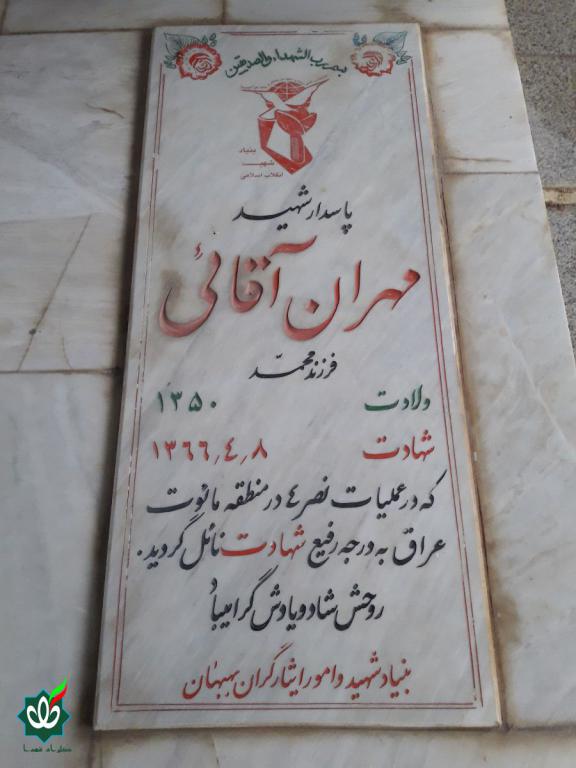 بسم رب الشهداء والصدیقین
بنیاد
شهید
انقلاب اسلامی
پاسدار شهید
مهران آقائی
فرزند محمد
ولادت ۱۳۵۰
شهادت ۱۳٦٦٫٤٫۸
که در عملیات نصر ٤ در منطقه مائوت
عراق به درجه رفیع شهادت نائل گردید.
روحش شاد و یادش گرامیباد
بنیاد شهید و امور ایثارگران بهبهان